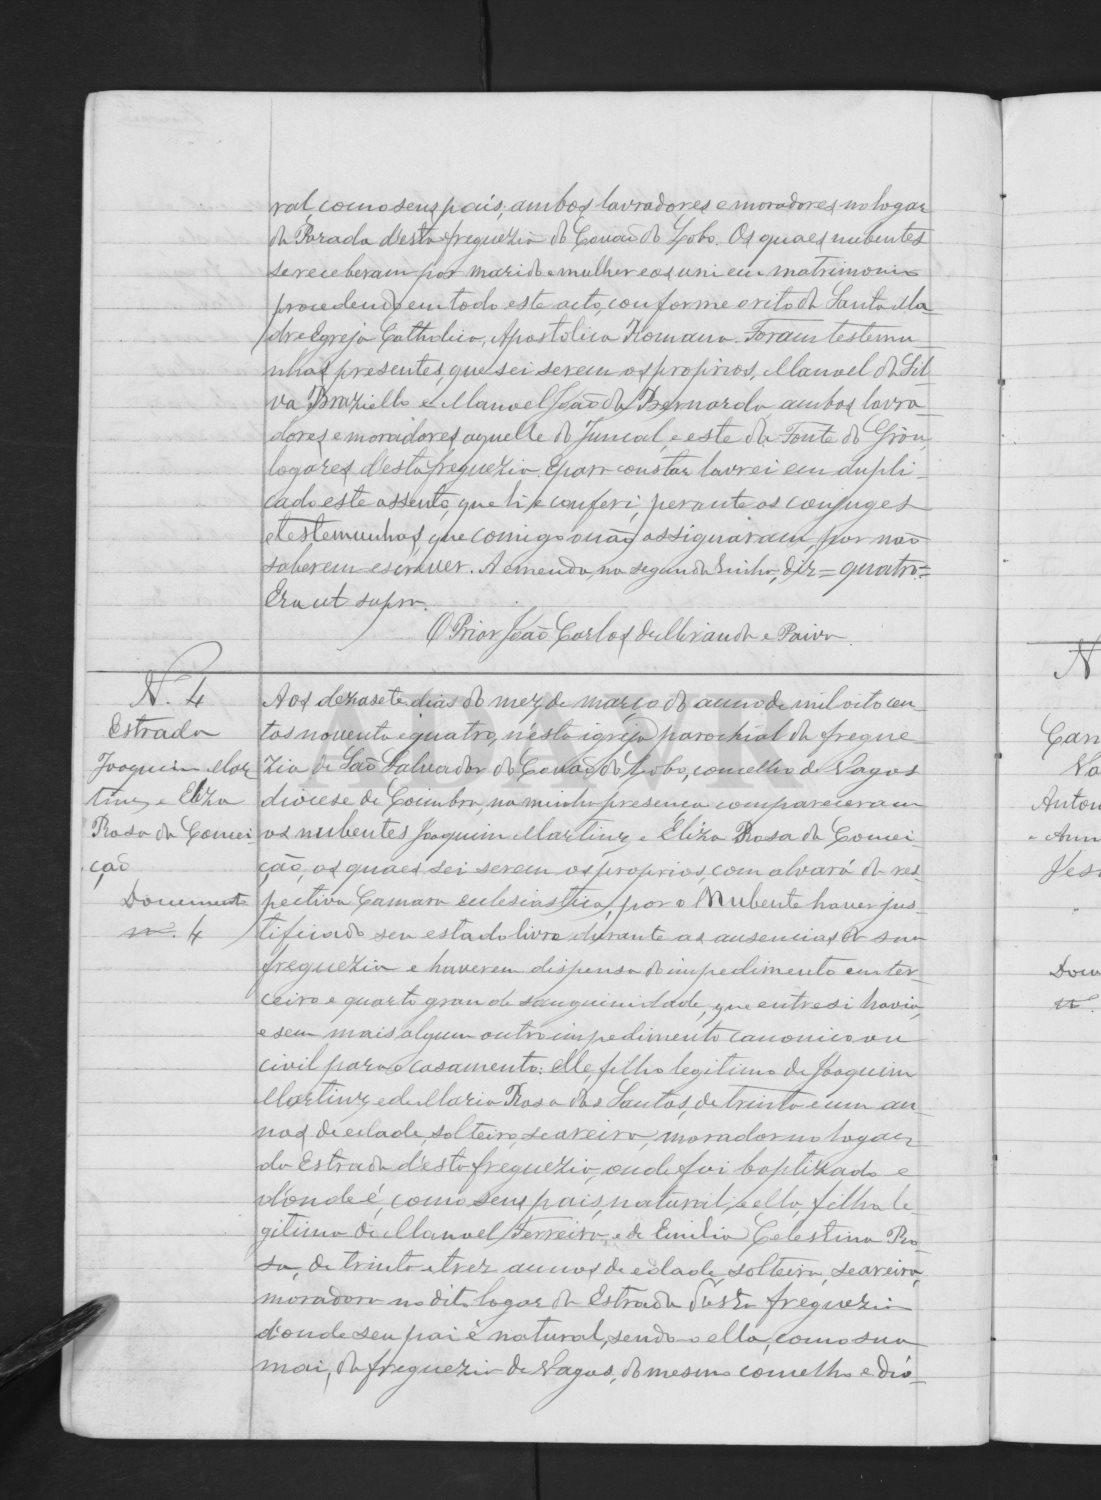 ral, como seus pais, ambos lavradores e moradores no logar
da Parada d'esta freguezia do Covão do Lobo. Os quaes nubentes
se receberam por marido e mulher e os uni em matrimonio
procedendo em todo este acto, conforme o rito da Santa Ma-
dre Egreja Catholica, Apostolica Romana. Foram testemu-
nhas presentes, que sei serem os proprios, Manoel da Sil-
va Braziello e Manoel João da Bernarda, ambos lavra-
dores e moradores aquelle do Juncal, e este da Fonte do Grou,
logares d'esta freguezia. E para constar lavrei em dupli-
cado este assento, que li e conferi, perante os conjuges
e testemunhas, que comigo não assignaram, por não
saberem escrever. A emenda, na segunda linha, diz = quatro =
Era ut supra.
O Prior João Carlos de Miranda e Paiva
N. 4
Estrada
Joaquim Mar
tinz, e Eliza
Rosa da Concei-
ção
Documento
nº. 4
Aos dezasete dias do mez de março do anno de mil oito cen-
tos noventa e quatro, n'esta igreja parochial da fregue-
zia de São Salvador do Covão do Lobo, concelho de Vagos
diocese de Coimbra, na minha presença compareceram
os nubentes Joaquim Martinz e Eliza Rosa da Concei-
ção, os quaes sei serem os proprios, com alvará da res-
pectiva Camara ecclesiastica, por o Nubente haver jus-
tificado seu estado livre durante as ausencias da sua
freguezia e haverem dispensa do impedimento em ter-
ceiro e quarto grau de sanguinidade, que entre si havia,
e sem mais algum outro impedimento canonico ou
civil para o casamento: elle, filho legitimo de Joaquim
Martinz e de Maria Rosa dos Santos, de trinta e um an-
nos de edade, solteiro, seareiro, morador no logar
da Estrada d'esta freguezia, onde foi baptizado e
d'onde é, como seus pais, natural, e ella, filha le-
gitima de Manoel Ferreira e de Emilia Celestina Ro-
sa, de trinta e trez annos de edade, solteira, seareira,
moradora no dito logar da Estrada d'esta freguezia
d'onde seu pai é natural, sendo-o ella, como sua
mai, da freguezia de Vagos, do mesmo concelho e dió-
ADAVR
N
Can
Va
Anton
e Ann
Jes
Docu
nº.